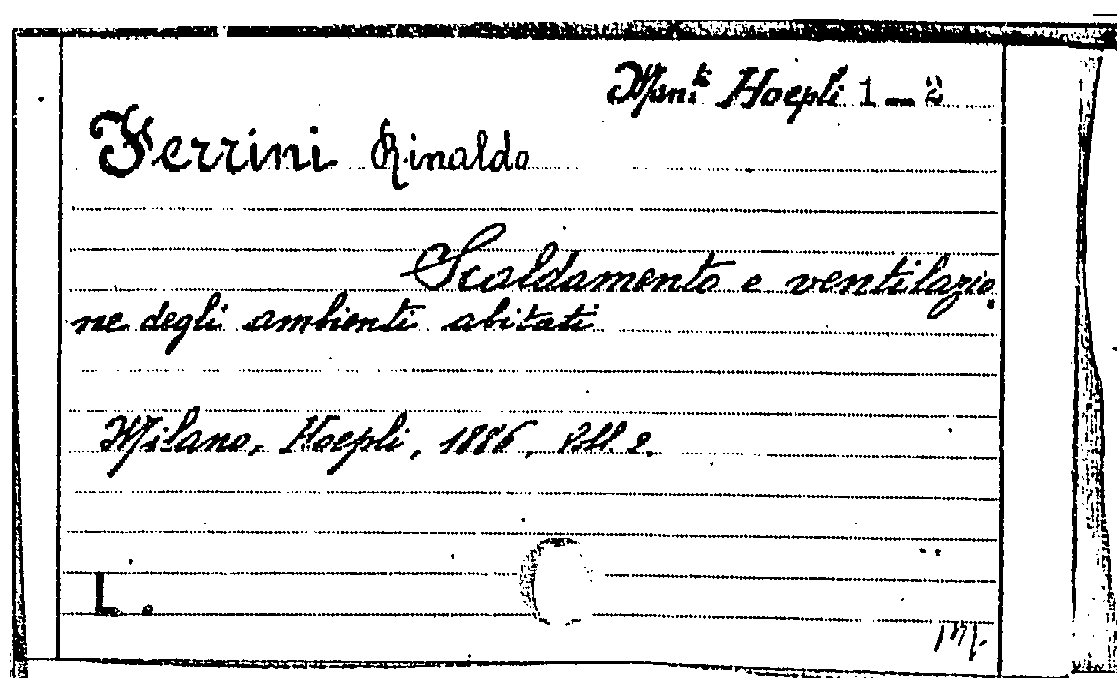 Man.li Hoepli 1–2
Ferrini Rinaldo
Scaldamento e ventilazio
ne degli ambienti abitati
Milano, Hoepli, 1886,
L.